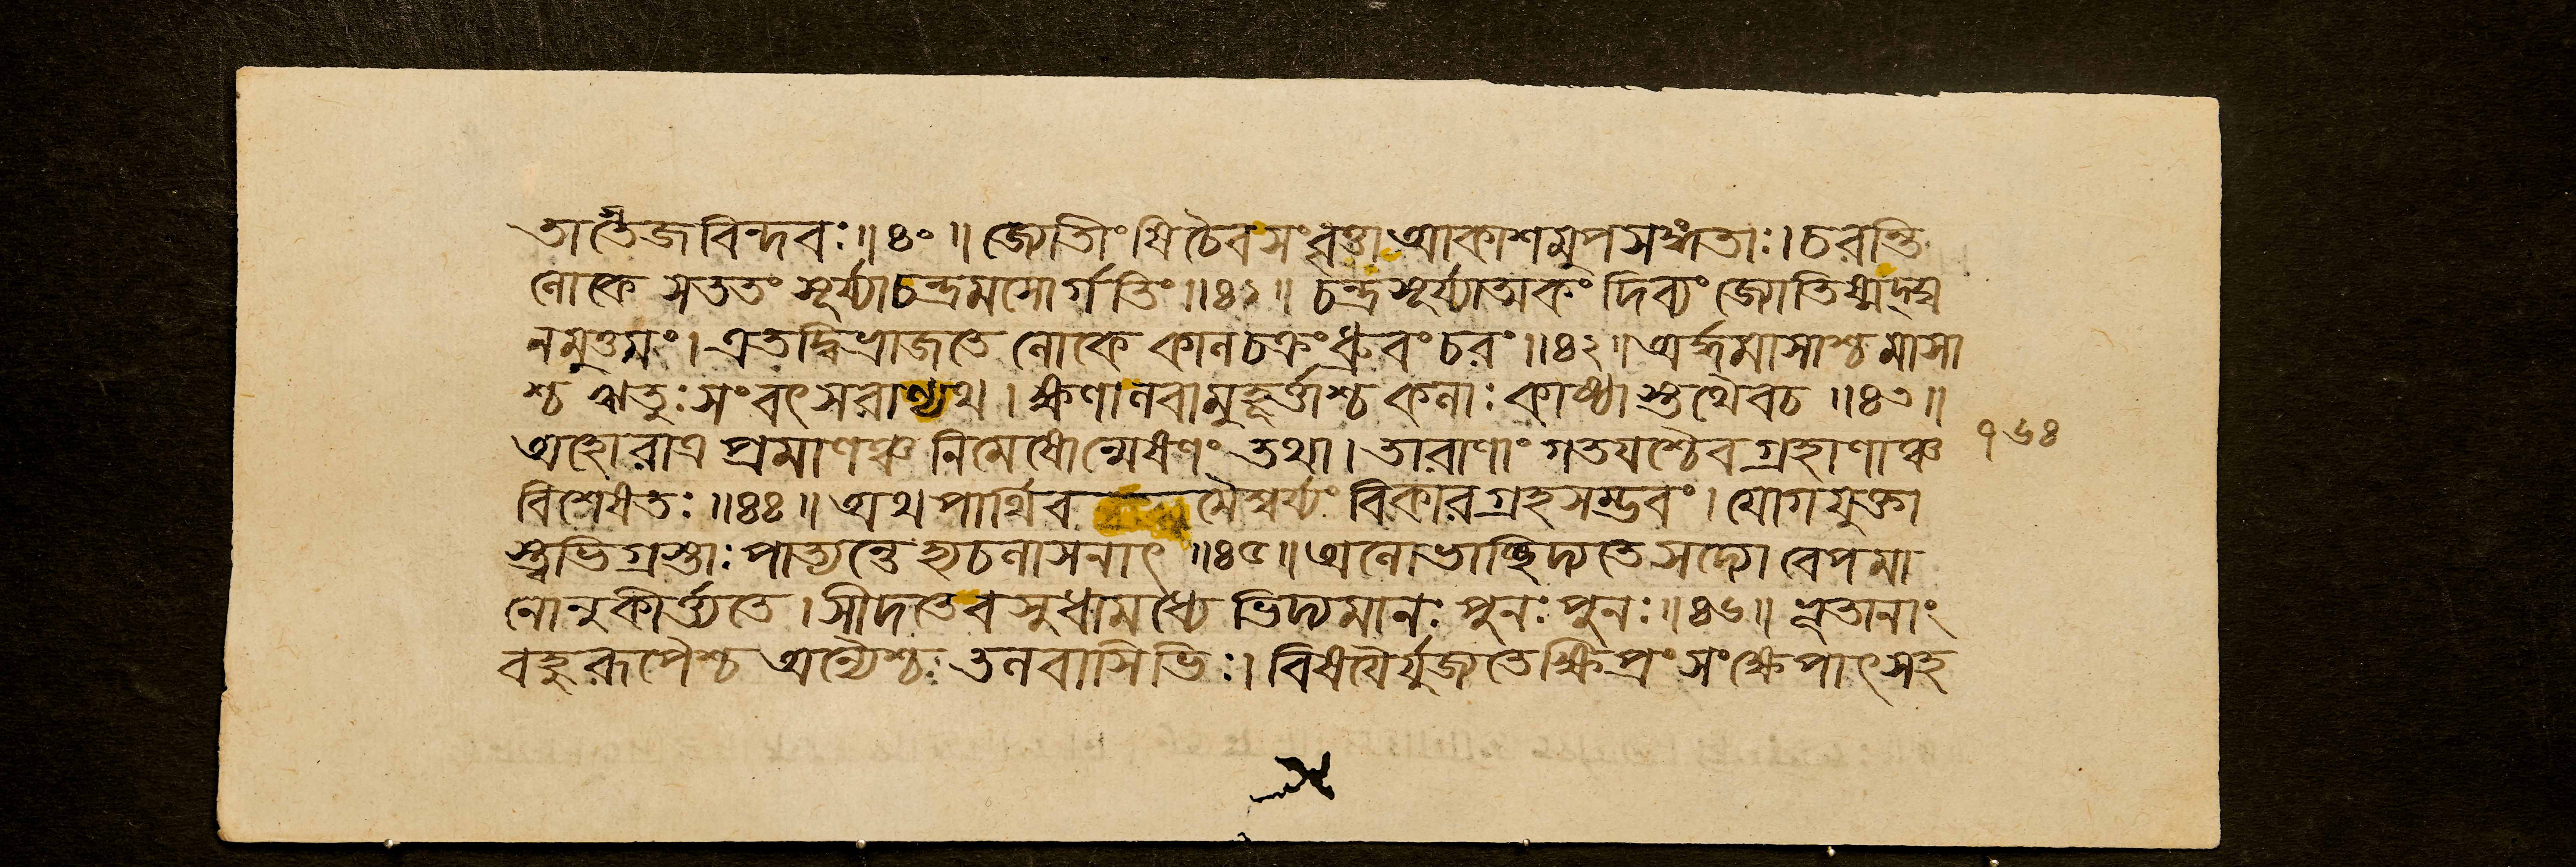 তার্তেজবিন্দবঃ॥৪০॥জ্যোতিংষিচৈবসংবৃত্তা আকাশমুপসঙ্গতাঃ।চরন্তি
লোকে সততং সূর্য্যাচন্দ্রমসোর্গতিং॥৪১॥ চন্দ্রসূর্য্যাত্মকং দিব্যং জ্যোতিষাদ্য
লমুত্তমং।এতদ্বিভ্রাজতে লোকে কালচক্রংধ্রুবংচরং॥৪২॥অর্দ্ধমাসাশ্চমাসা
শ্চ ঋতুঃসংবৎসরাণ্যথ।ক্ষণালবামুহূর্ত্তাশ্চ কলাঃকাষ্ঠাস্তথৈবচ॥৪৩॥
অহোরাত্রপ্রমাণঞ্চ নিমেষোন্মেষণং তথা।তারাণাং গতয়শ্চৈবগ্রহাণাঞ্চ
১৬৪
বিশেষতঃ॥৪৪॥অথপার্থিব মৈশ্বর্য্যং বিকারগ্রহসম্ভবং।যোগযুক্তা
স্ত্বভিগ্রস্তাঃপাত্যন্তেহ্যচলাসনাৎ॥৪৫॥অলোভাচ্ছিদ্যতেসদ্যো বেপমা
নোনুকীর্ত্যতে।সীদতেবসুধামধ্যে ভিদ্যমানঃ পুনঃ পুনঃ॥৪৬॥ নৃতানাং
বহুরূপৈশ্চ অন্যৈশ্চ তলবাসিভিঃ।বিষয়ৈর্যুজ্যতেক্ষিপ্রংসংক্ষেপাৎসহ